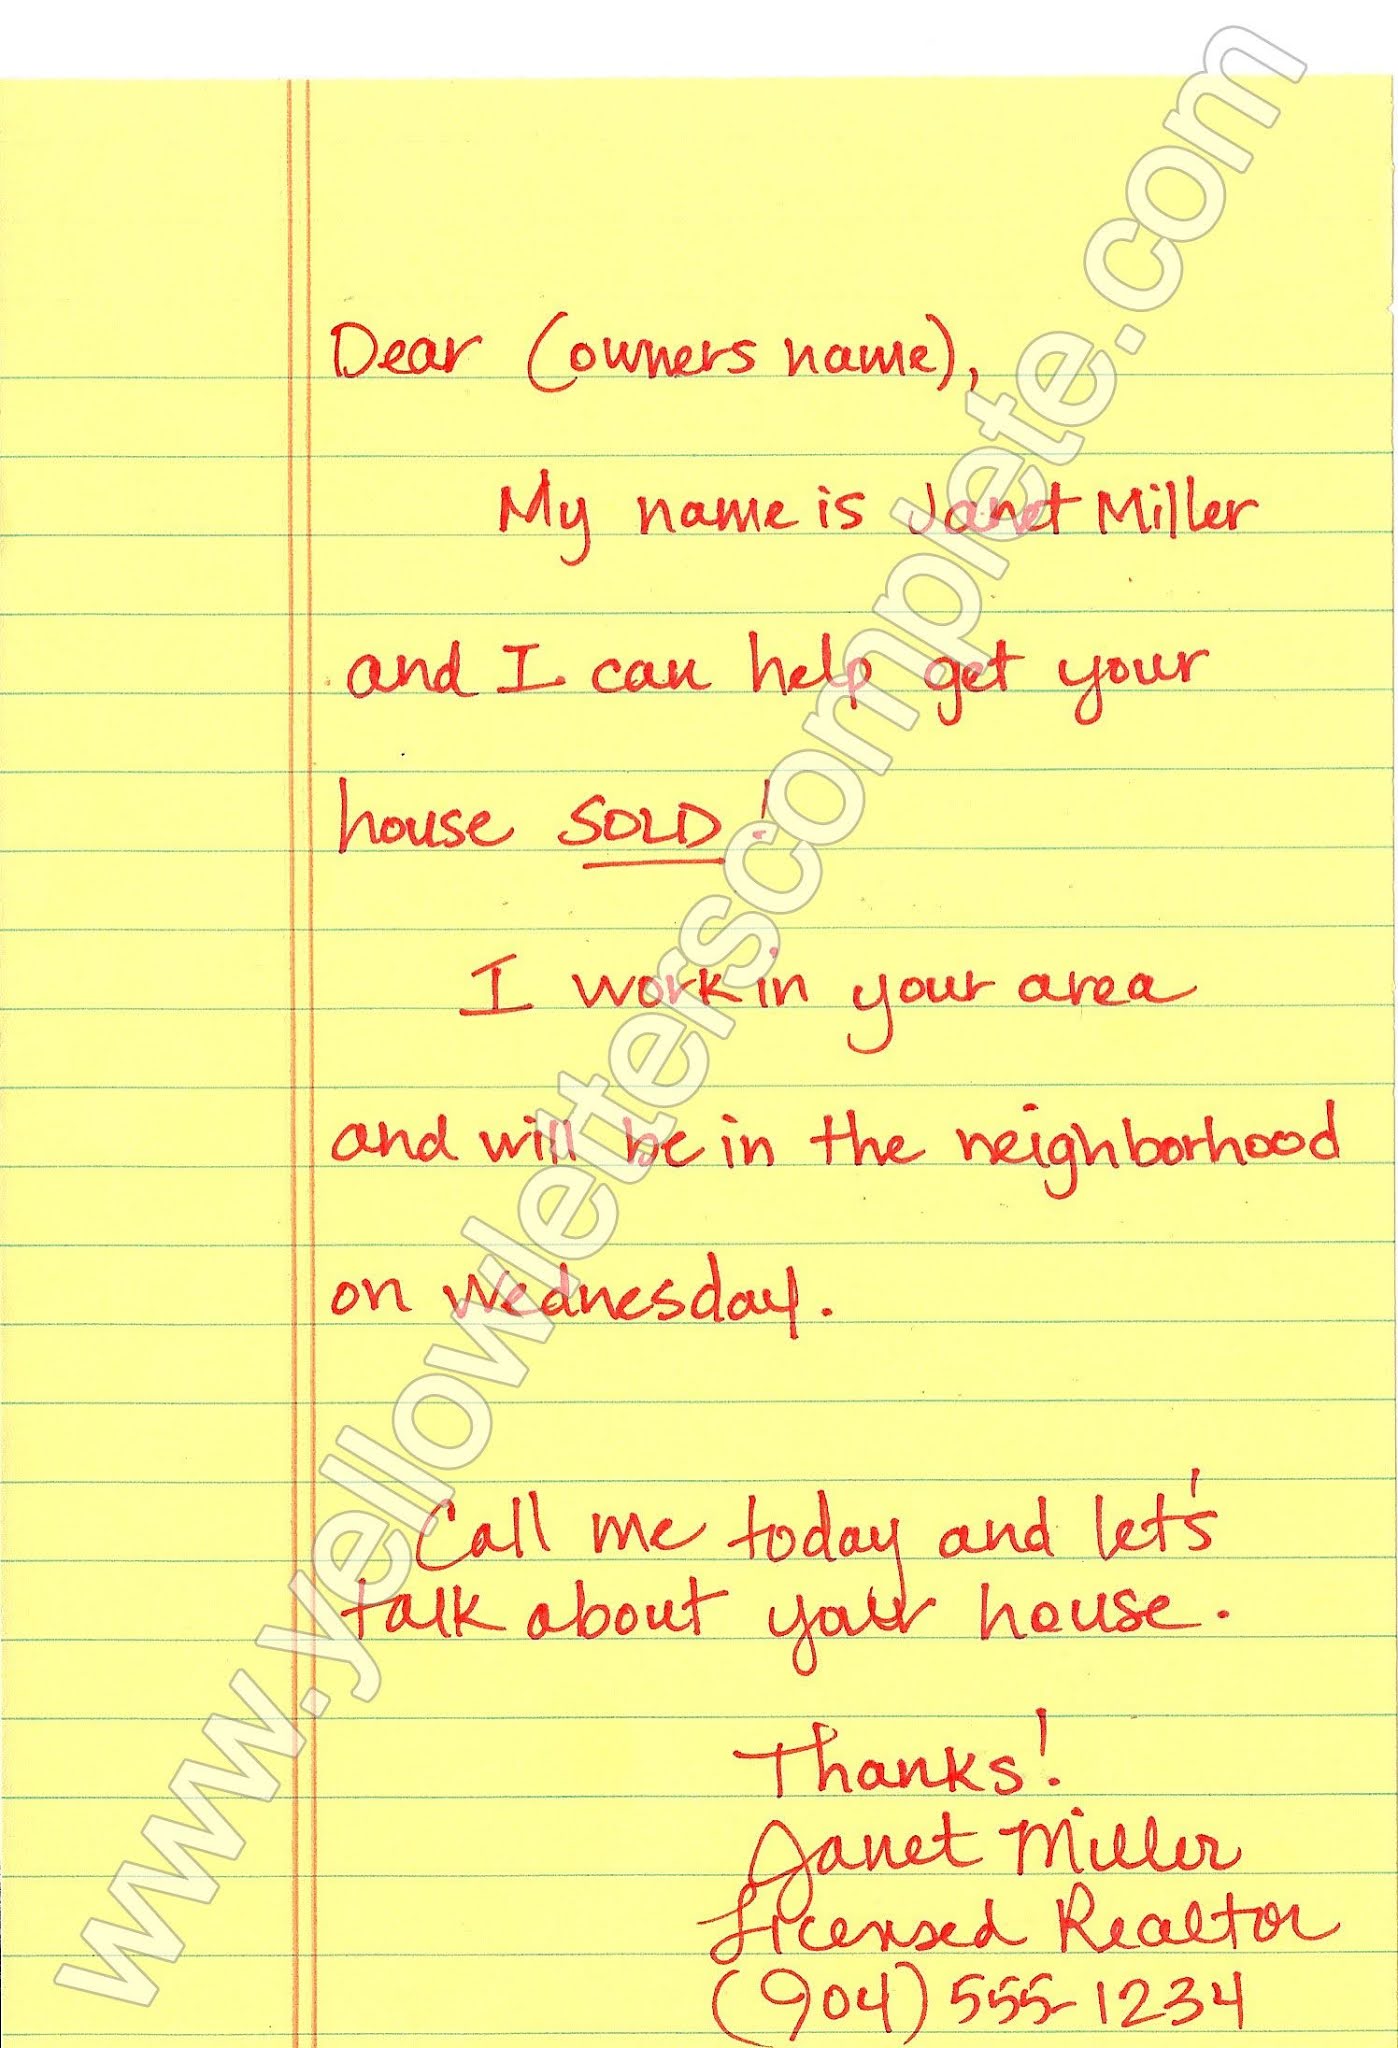 Dear (owners name),
My name is Janet Miller
and I can help get your
house SOLD!
I work in your area
and will be in the neighborhood
on Wednesday.
Call me today and let's
talk about your house.
Thanks!
Janet Miller
Licensed Realtor
(904) 555-1234
www.yellowletterscomplete.com